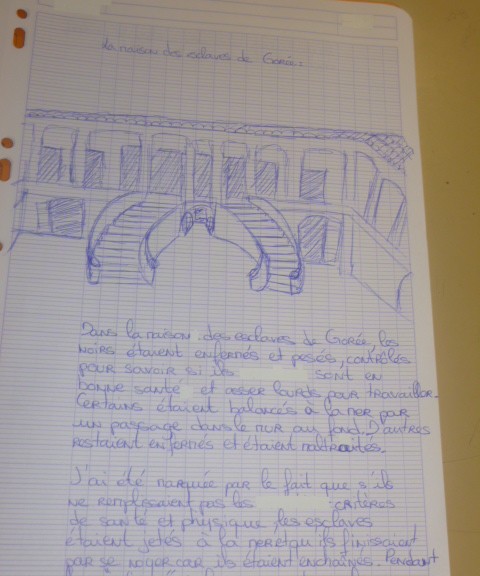 La maison des esclaves de Gorée :
Dans la maison des esclaves de Gorée, les
noirs étaient enfermés et pesés, contrôlés
pour savoir si ils sont en
bonne santé et asser lourds pour travailler.
Certains étaient balancés à la mer par
un passage dans le mur au fond. D'autres
restaient enfermés et étaient maltraités.
J'ai été marquée par le fait que s'ils
ne remplissaient pas les critères
de santé et physique, les esclaves
étaient jetés à la mer et qu'ils finissaient
par se noyer car ils étaient enchaînés. Pendant